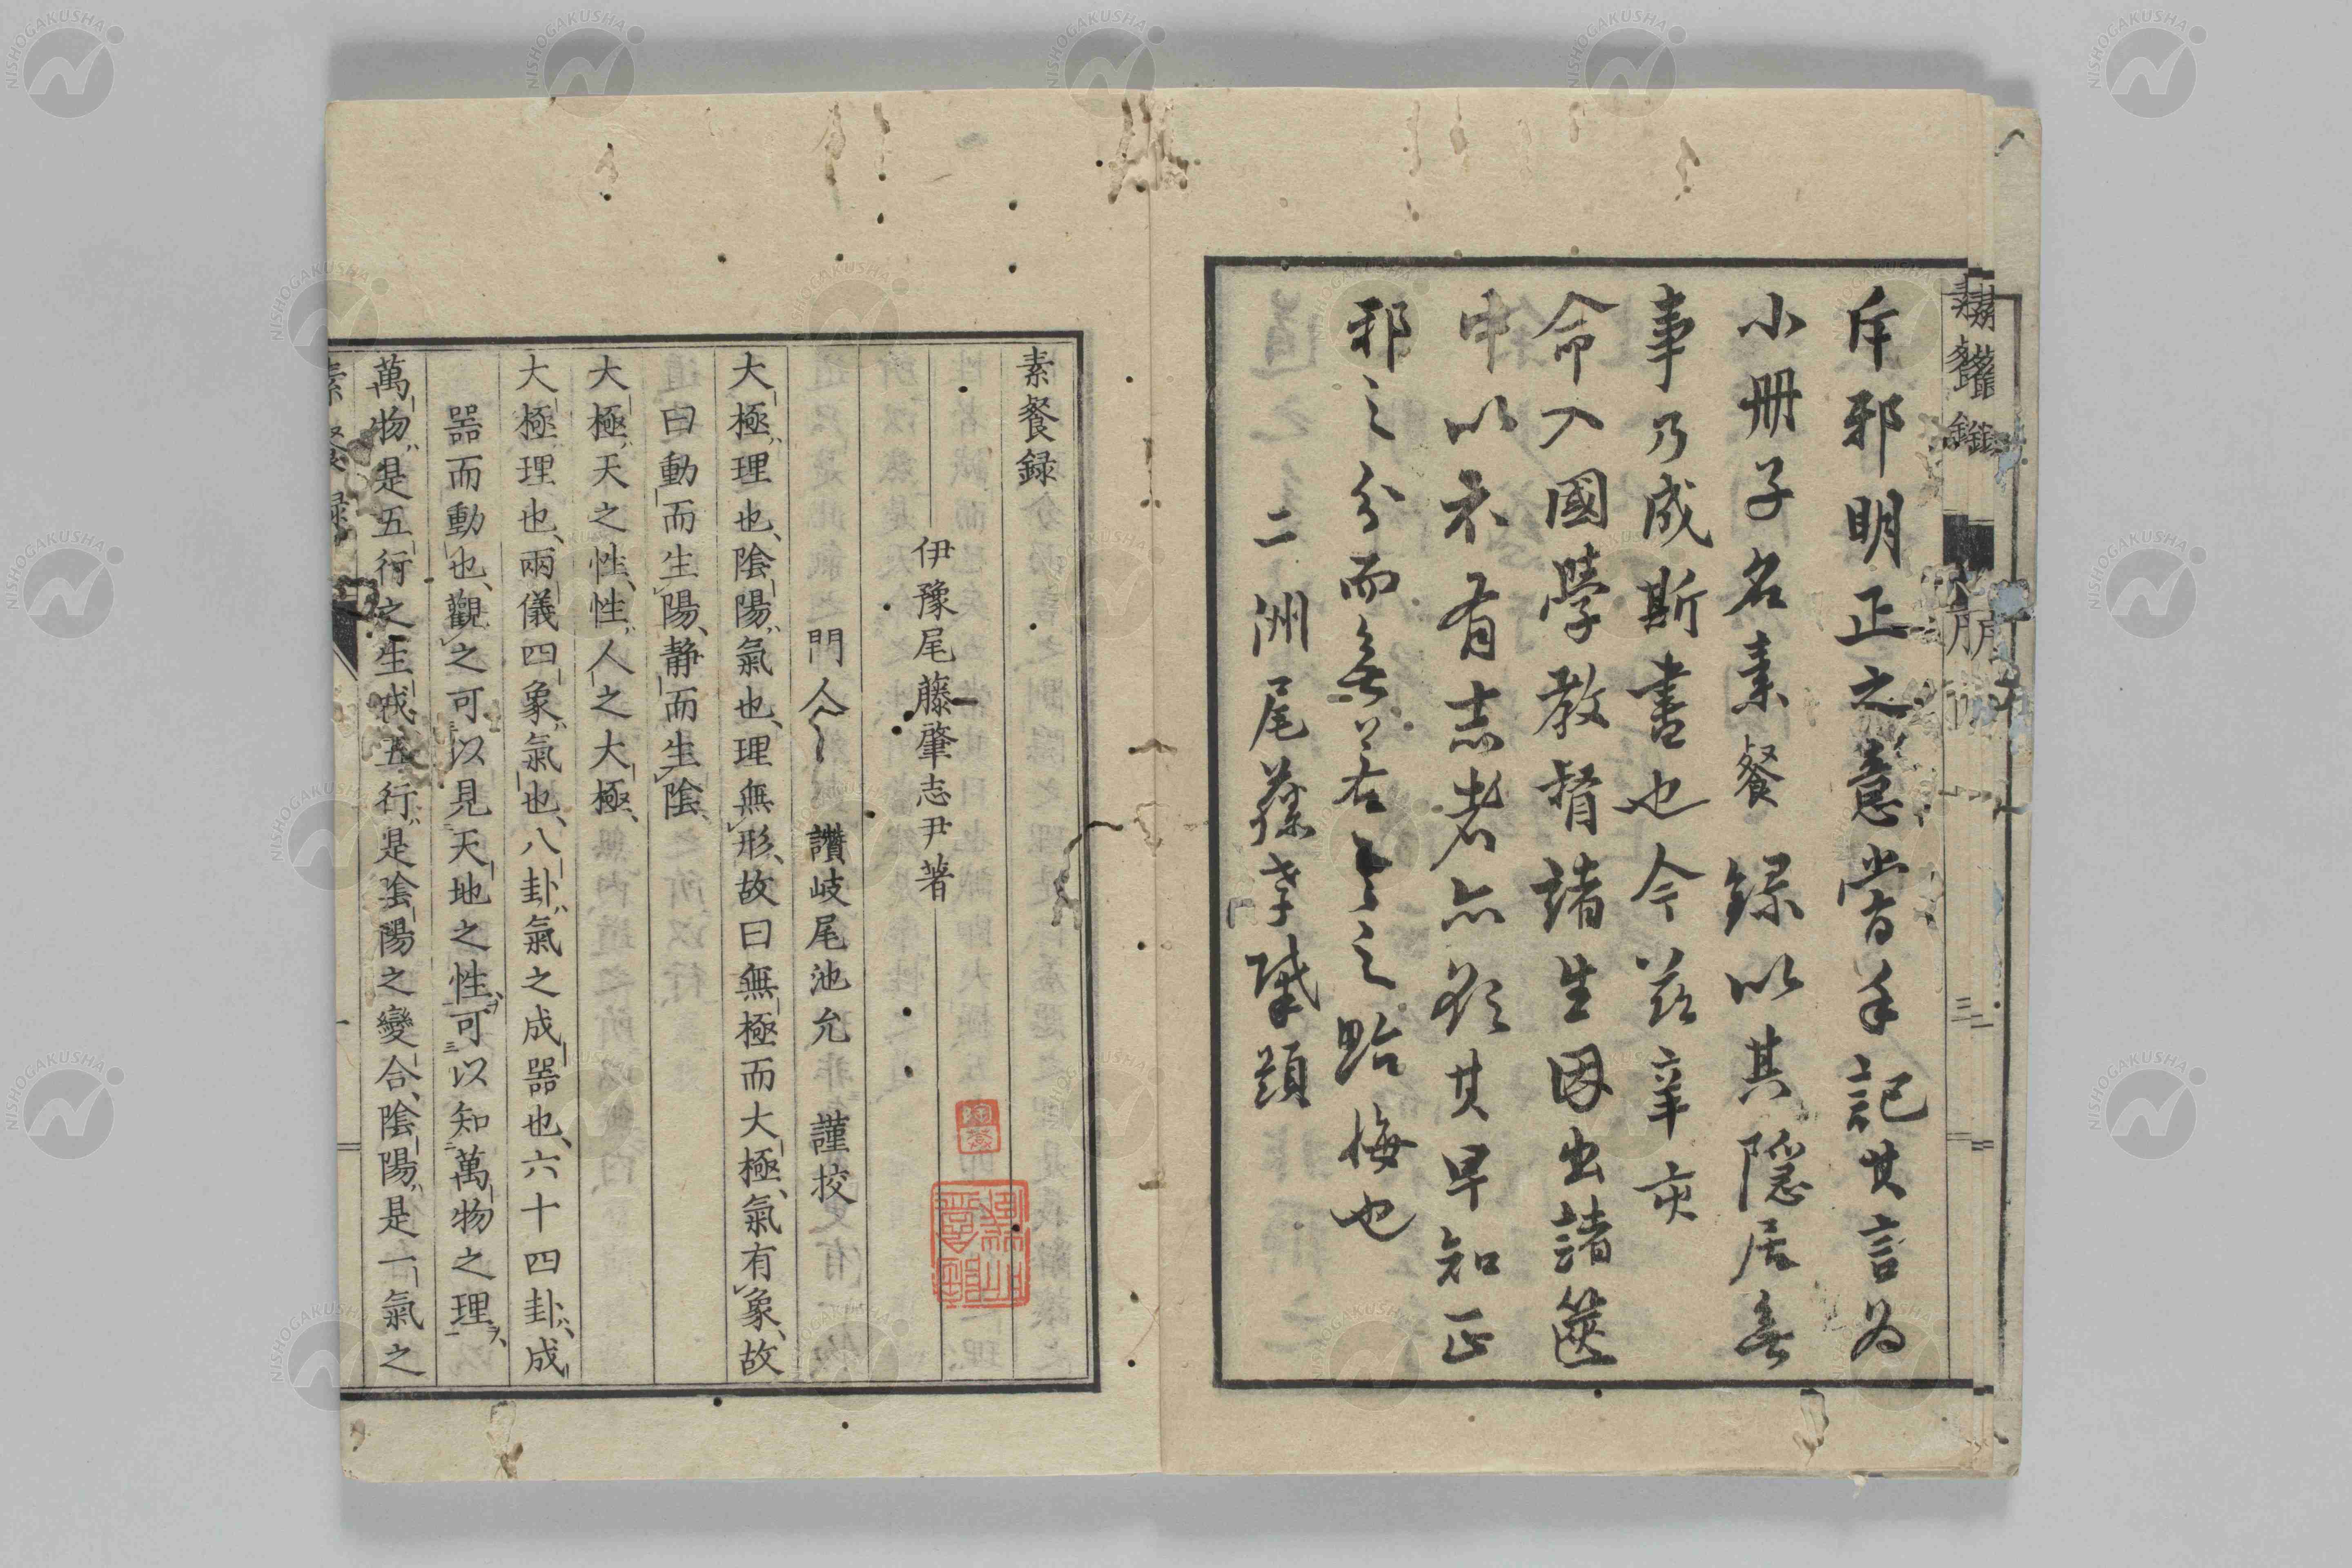 斥邪明正之意嘗手記其言為
小冊子名素餐錄以其隱居無
事乃成斯書也今茲辛亥
命入國學教督諸生因出諸篋
中以示有志者亦欲其早知正
邪之分而無若之貽悔也
二洲尾藤孝肇題
素餐録
伊豫尾藤肇志尹著
門人 讃岐尾池允 謹挍
大極理也、陰陽氣也、理無形、故曰無極而大極、氣有象、故
曰動而生陽、静而生陰
大極天之性、性人之大極、
大極理也、兩儀四象氣也、八卦氣之成器也、六十四卦成
器而動也、觀之可以見天地之性、可以知萬物之理、
萬物是五行之生成、五行是陰陽之變合、陰陽是一氣之
NISHOGAKUSHA